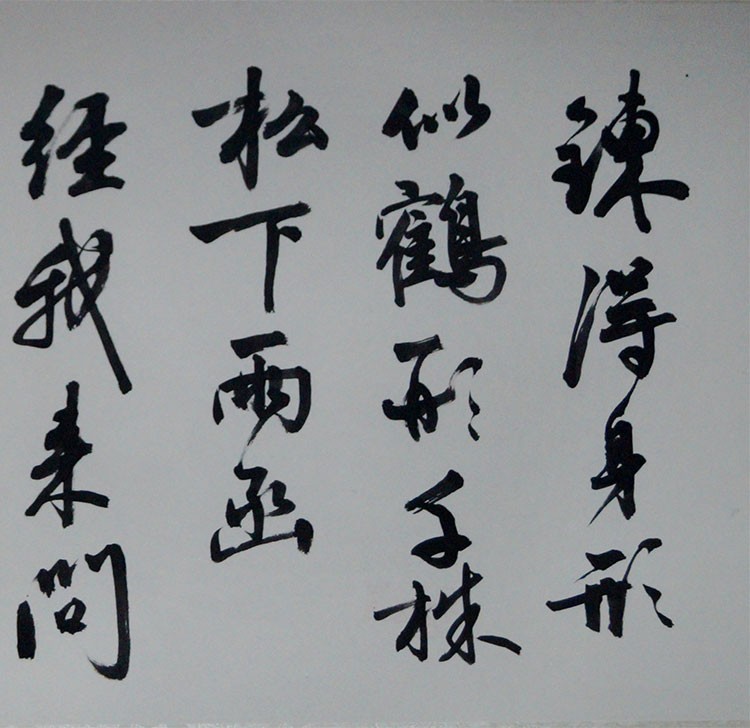 鍊得身形
似鶴形千株
松下兩函
經我来問